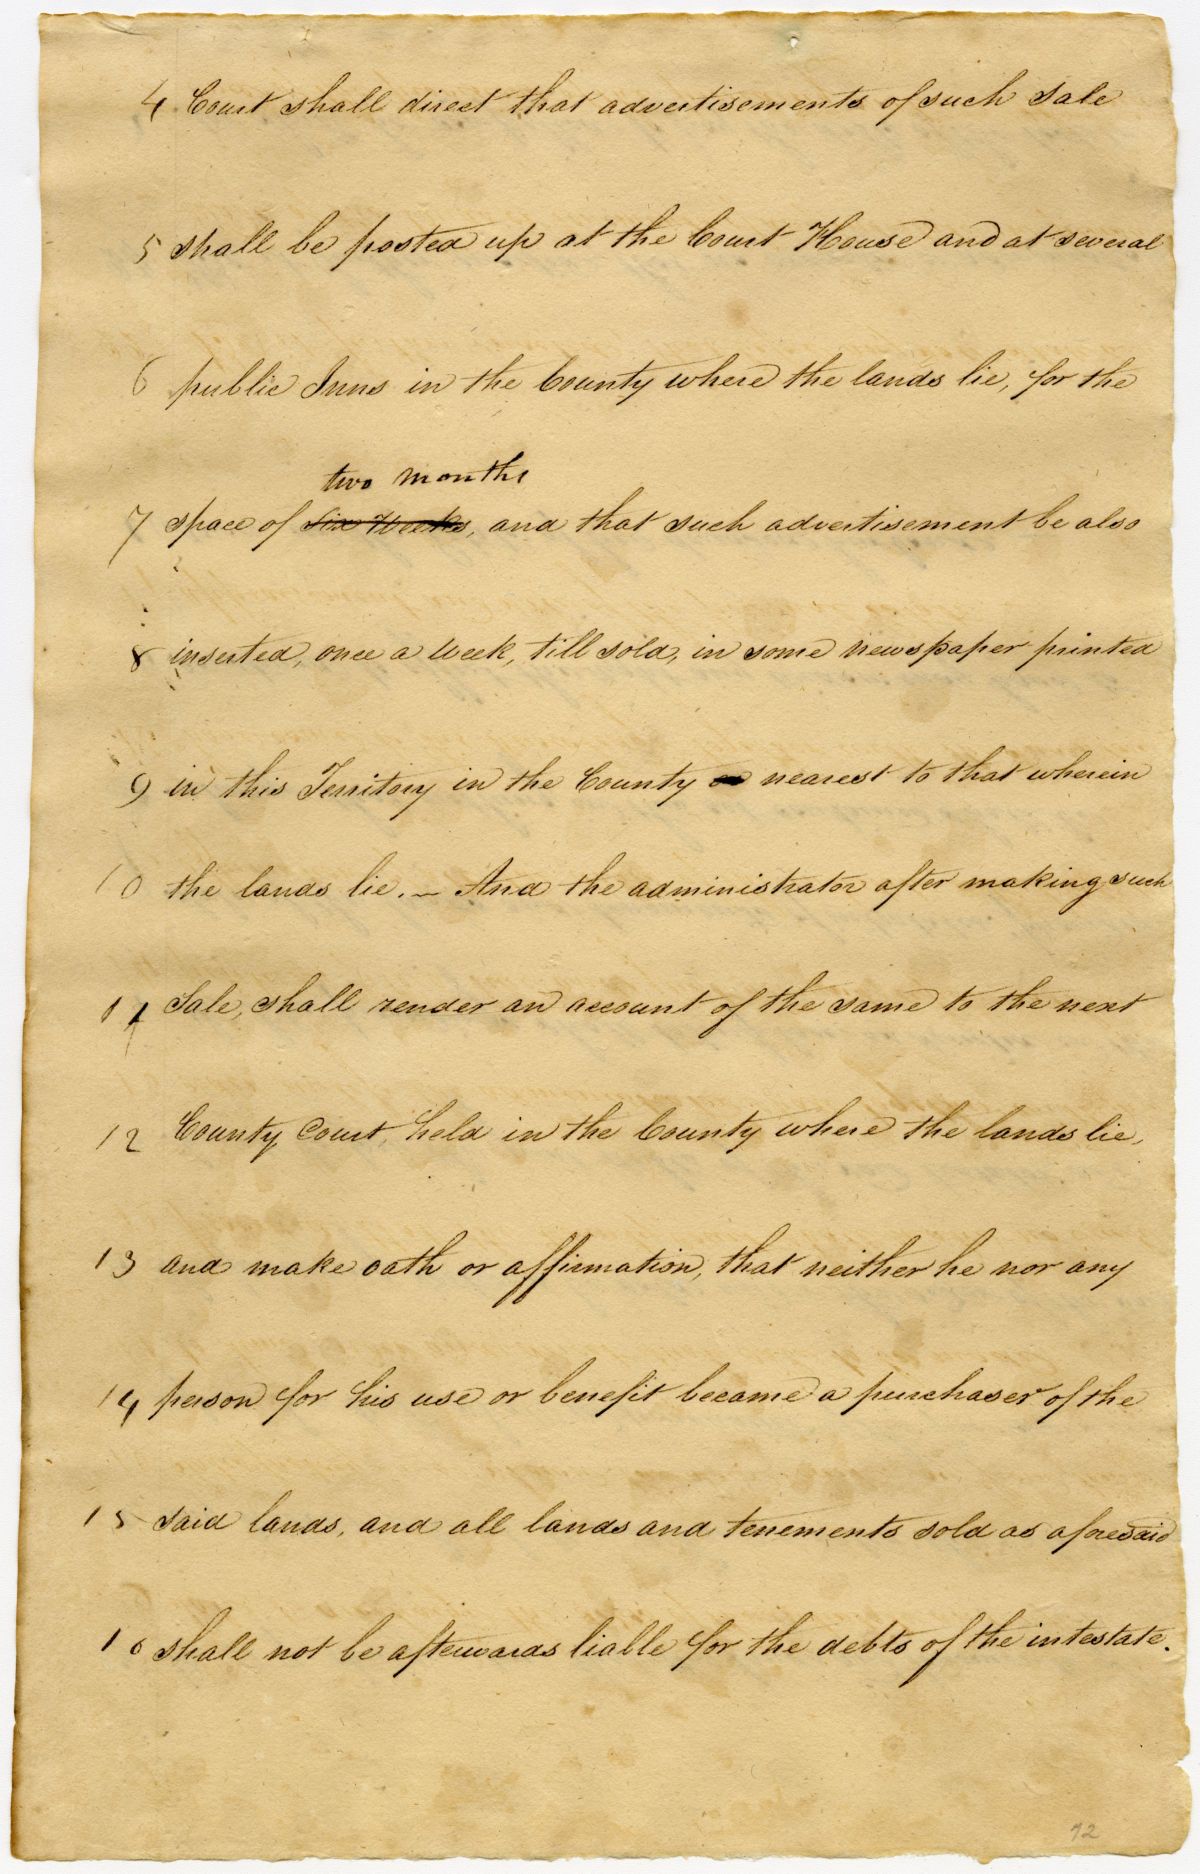 4 Court shall direct that advertisements of such Sale
5 shall be posted up at the Court House and at several
6 public Inns in the County where the lands lie, for the
two months
7 space of six Weeks, and that such advertisement be also
8 inserted, once a Week, till sold, in some newspaper printed
9 in this Territory in the County or nearest to that wherein
10 the lands lie. – And the administrator after making such
11 Sale, shall render an account of the same to the next
12 County Court, held in the County where the lands lie,
13 and make oath or affirmation, that neither he nor any
14 person for his use or benefit became a purchaser of the
15 said lands, and all lands and tenements sold as aforesaid
16 shall not be afterwards liable for the debts of the intestate.
92